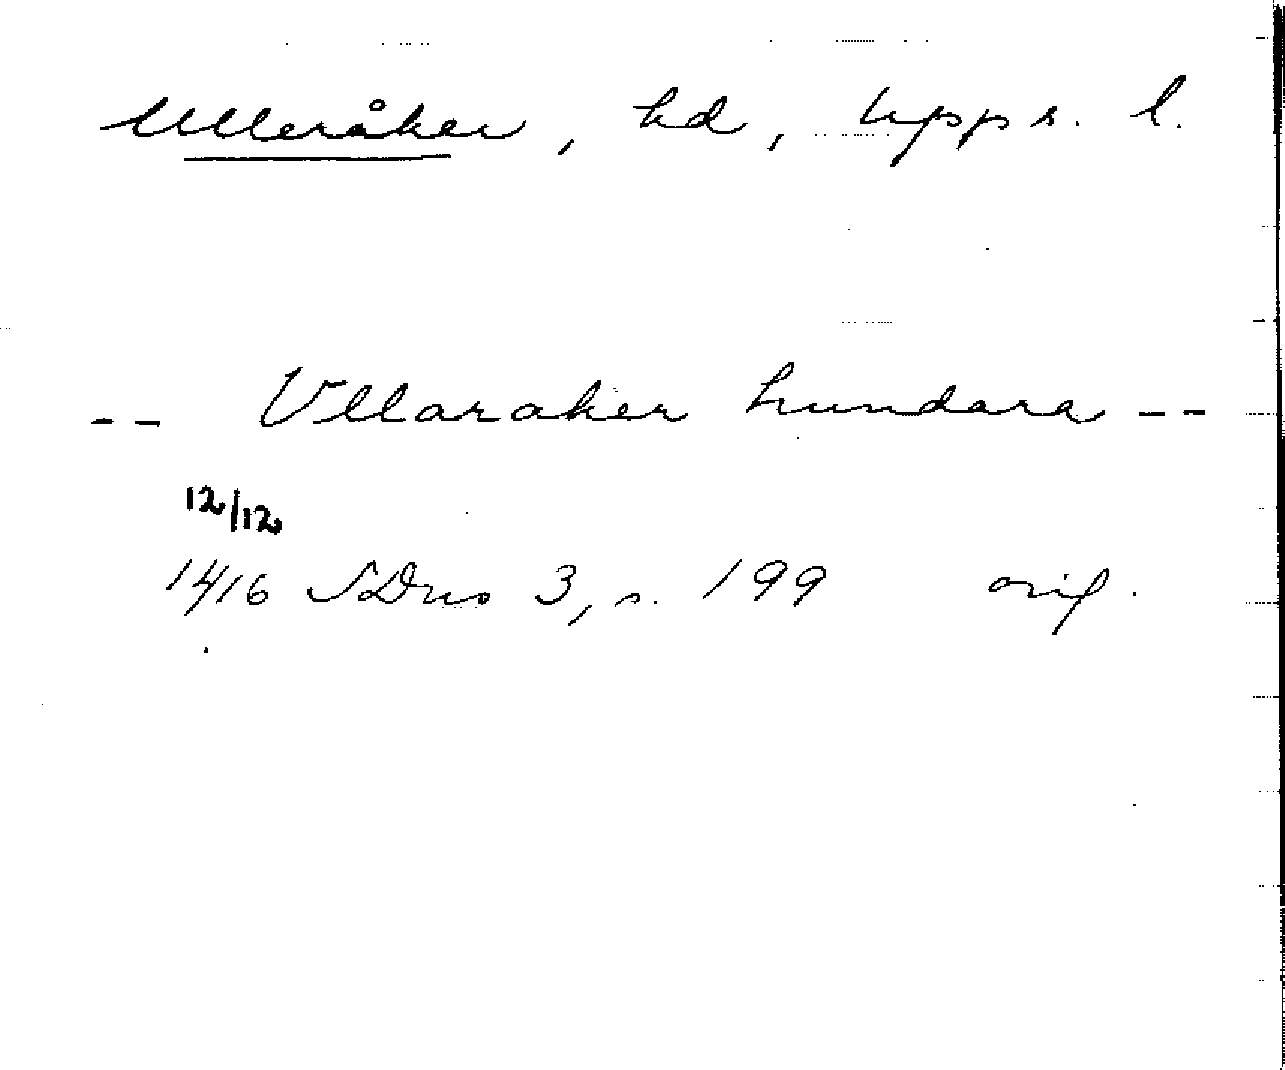 Ulleråker, hd, Upps. l.
-- Vllaraker hundara --
12/12
1416 SDns 3, s. 199 orig.